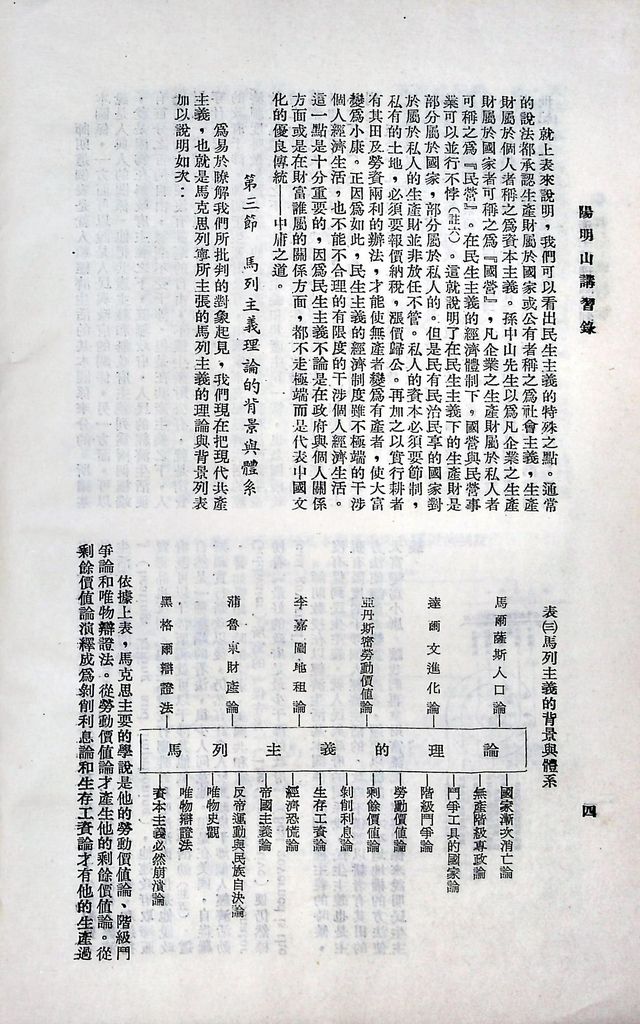 陽明山講習錄
四
就上表來說明，我們可以看出民生主義的特殊之點。通常
的說法都承認生產財屬於國家或公有者稱之為社會主義，生產
財屬於個人者稱之為資本主義。孫中山先生以為凡企業之生產
財屬於國家者可稱之為『國營』，凡企業之生產財屬於私人者
可稱之為『民營』。在民生主義的經濟體制下，國營與民營事
業可以並行不悖（註六）。這就說明了在民生主義下的生產財是
部分屬於國家，部分屬於私人的。但是民有民治民享的國家對
於屬於私人的生產財並非放任不管。私人的資本必須要節制，
私有的土地，必須要報價納稅，漲價歸公。再加之以實行耕者
有其田及勞資兩利的辦法，才能使無產者變為有產者，使大富
變為小康。正因為如此，民生主義的經濟制度雖不極端的干涉
個人經濟生活，也不能不合理的有限度的干涉個人經濟生活。
這一點是十分重要的，因為民生主義不論是在政府與個人關係
方面或是在財富誰屬的關係方面，都不走極端而是代表中國文
化的優良傳統——中庸之道。
第三節　馬列主義理論的背景與體系
為易於瞭解我們所批判的對象起見，我們現在把現代共產
主義，也就是馬克思列寧所主張的馬列主義的理論與背景列表
加以說明如次：
表㈢馬列主義的背景與體系
馬爾薩斯人口論
達爾文進化論
亞丹斯密勞動價值論
李嘉圖地租論
蒲魯東財產論
黑格爾辯證法
馬列主義的理論
國家漸次消亡論
無產階級專政論
鬥爭工具的國家論
階級鬥爭論
勞動價值論
剩餘價值論
剝削利息論
生存工資論
經濟恐慌論
帝國主義論
反帝運動與民族自決論
唯物史觀
唯物辯證法
資本主義必然崩潰論
依據上表，馬克思主要的學說是他的勞動價值論、階級鬥
爭論和唯物辯證法。從勞動價值論才產生他的剩餘價值論。從
剩餘價值論演釋成為剝削利息論和生存工資論才有他的生產過